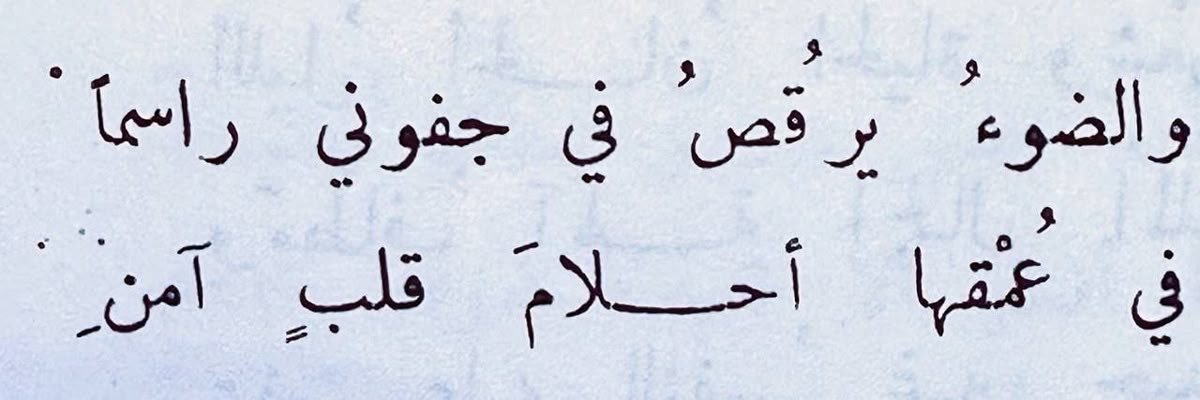 والضوءُ يرقُصُ في جفوني راسماً
في عُمْقها أحـــلامَ قلبٍ آمنِ